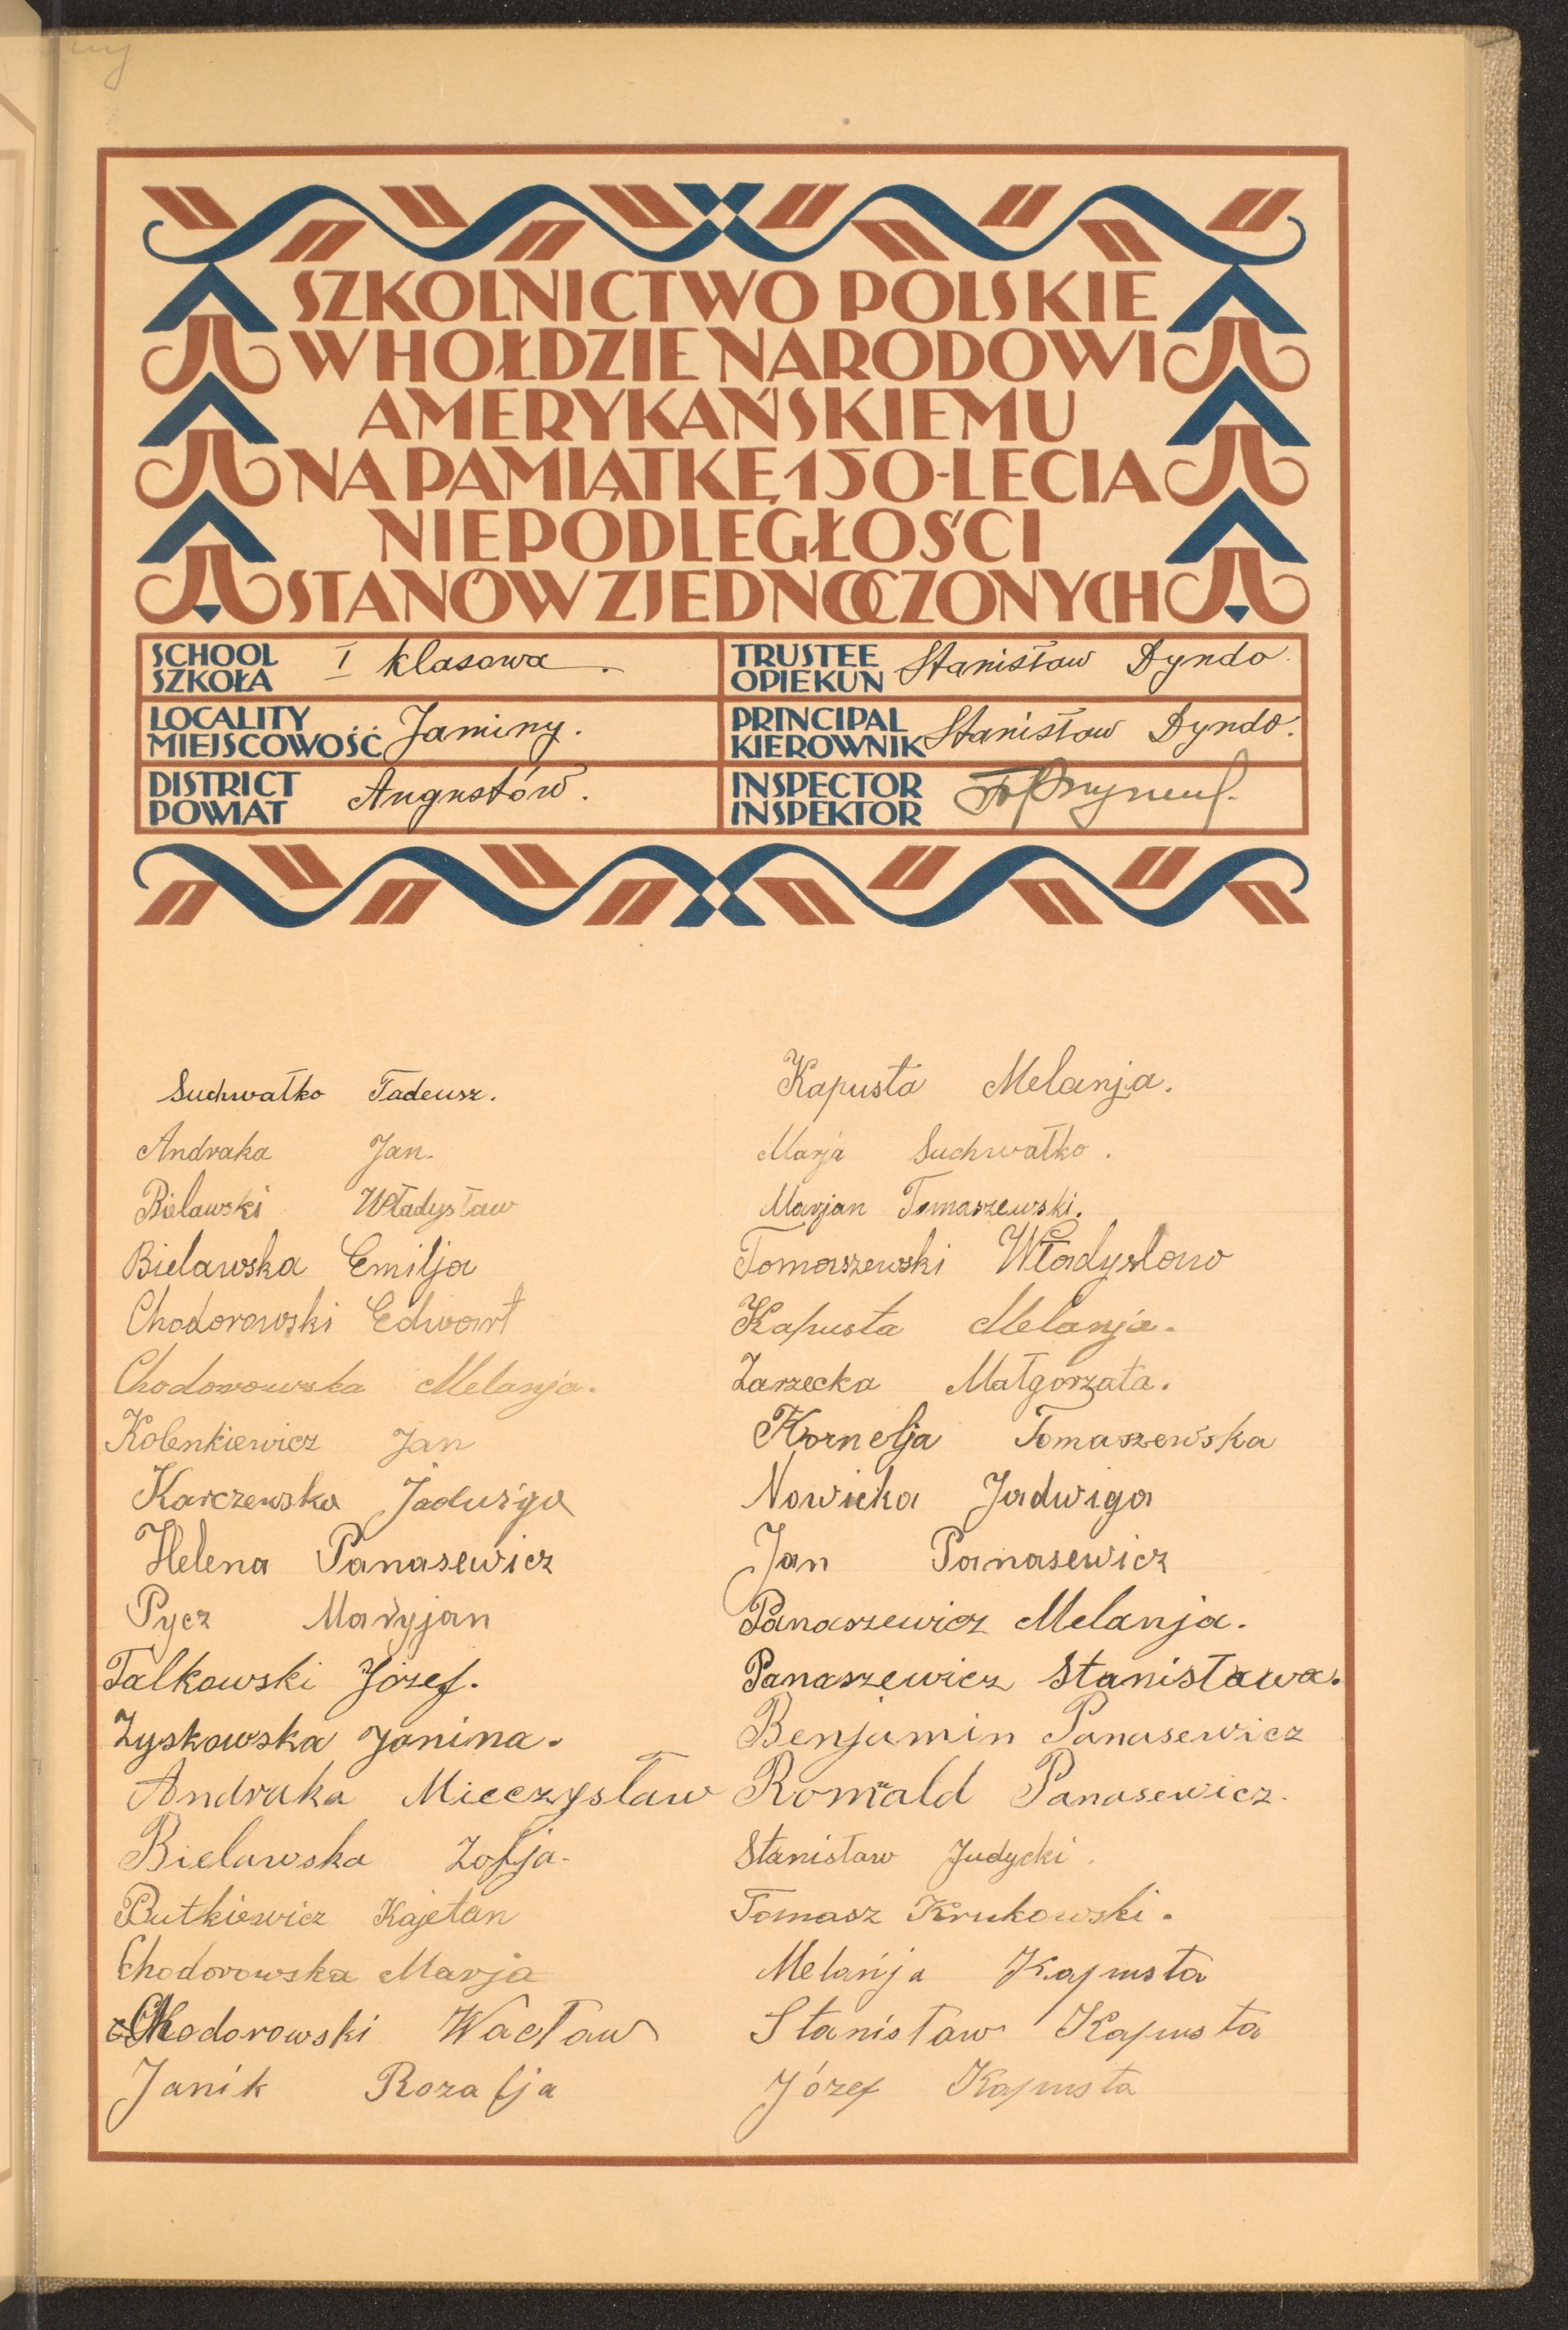 SZKOLNICTWO POLSKIE
W HOŁDZIE NARODOWI
AMERYKAŃSKIEMU
NA PAMIĄTKĘ 150-LECIA
NIEPODLEGŁOŚCI
STANÓW ZJEDNOCZONYCH
SCHOOL
SZKOŁA
I klasowa.
TRUSTEE
OPIEKUN
Stanisław Dyndo.
LOCALITY
MIEJSCOWOŚĆ
Jaminy.
PRINCIPAL
KIEROWNIK
Stanisław Dyndo.
DISTRICT
POWIAT
Augustów.
INSPECTOR
INSPEKTOR
Suchwałko Tadeusz.
Andraka Jan.
Bielawski Władysław
Bielawska Emilja
Chodorowski Edwart
Chodorowska Melanja.
Kolenkiewicz Jan
Karczewska Jadwiga
Helena Panasewicz
Pycz Maryjan
Talkowski Józef.
Zyskowska Janina.
Andraka Mieczysław
Bielawska Zofja.
Butkiewicz Kajetan
Chodorowska Marja
Chodorowski Wacław
Janik Rozalja
Kapusta Melanja.
Marja Suchwałko.
Marjan Tomaszewski.
Tomaszewski Władysław
Kapusta Melanja.
Zarzecka Małgorzata.
Kornelja Tomaszewska
Nowicka Jadwiga
Jan Panasewicz
Panaszewicz Melanja.
Panaszewicz Stanisława.
Benjamin Panasewicz
Romald Panasewicz.
Stanisław Judycki.
Tomasz Krukowski.
Melanja Kapusta
Stanisław Kapusta
Józef Kapusta